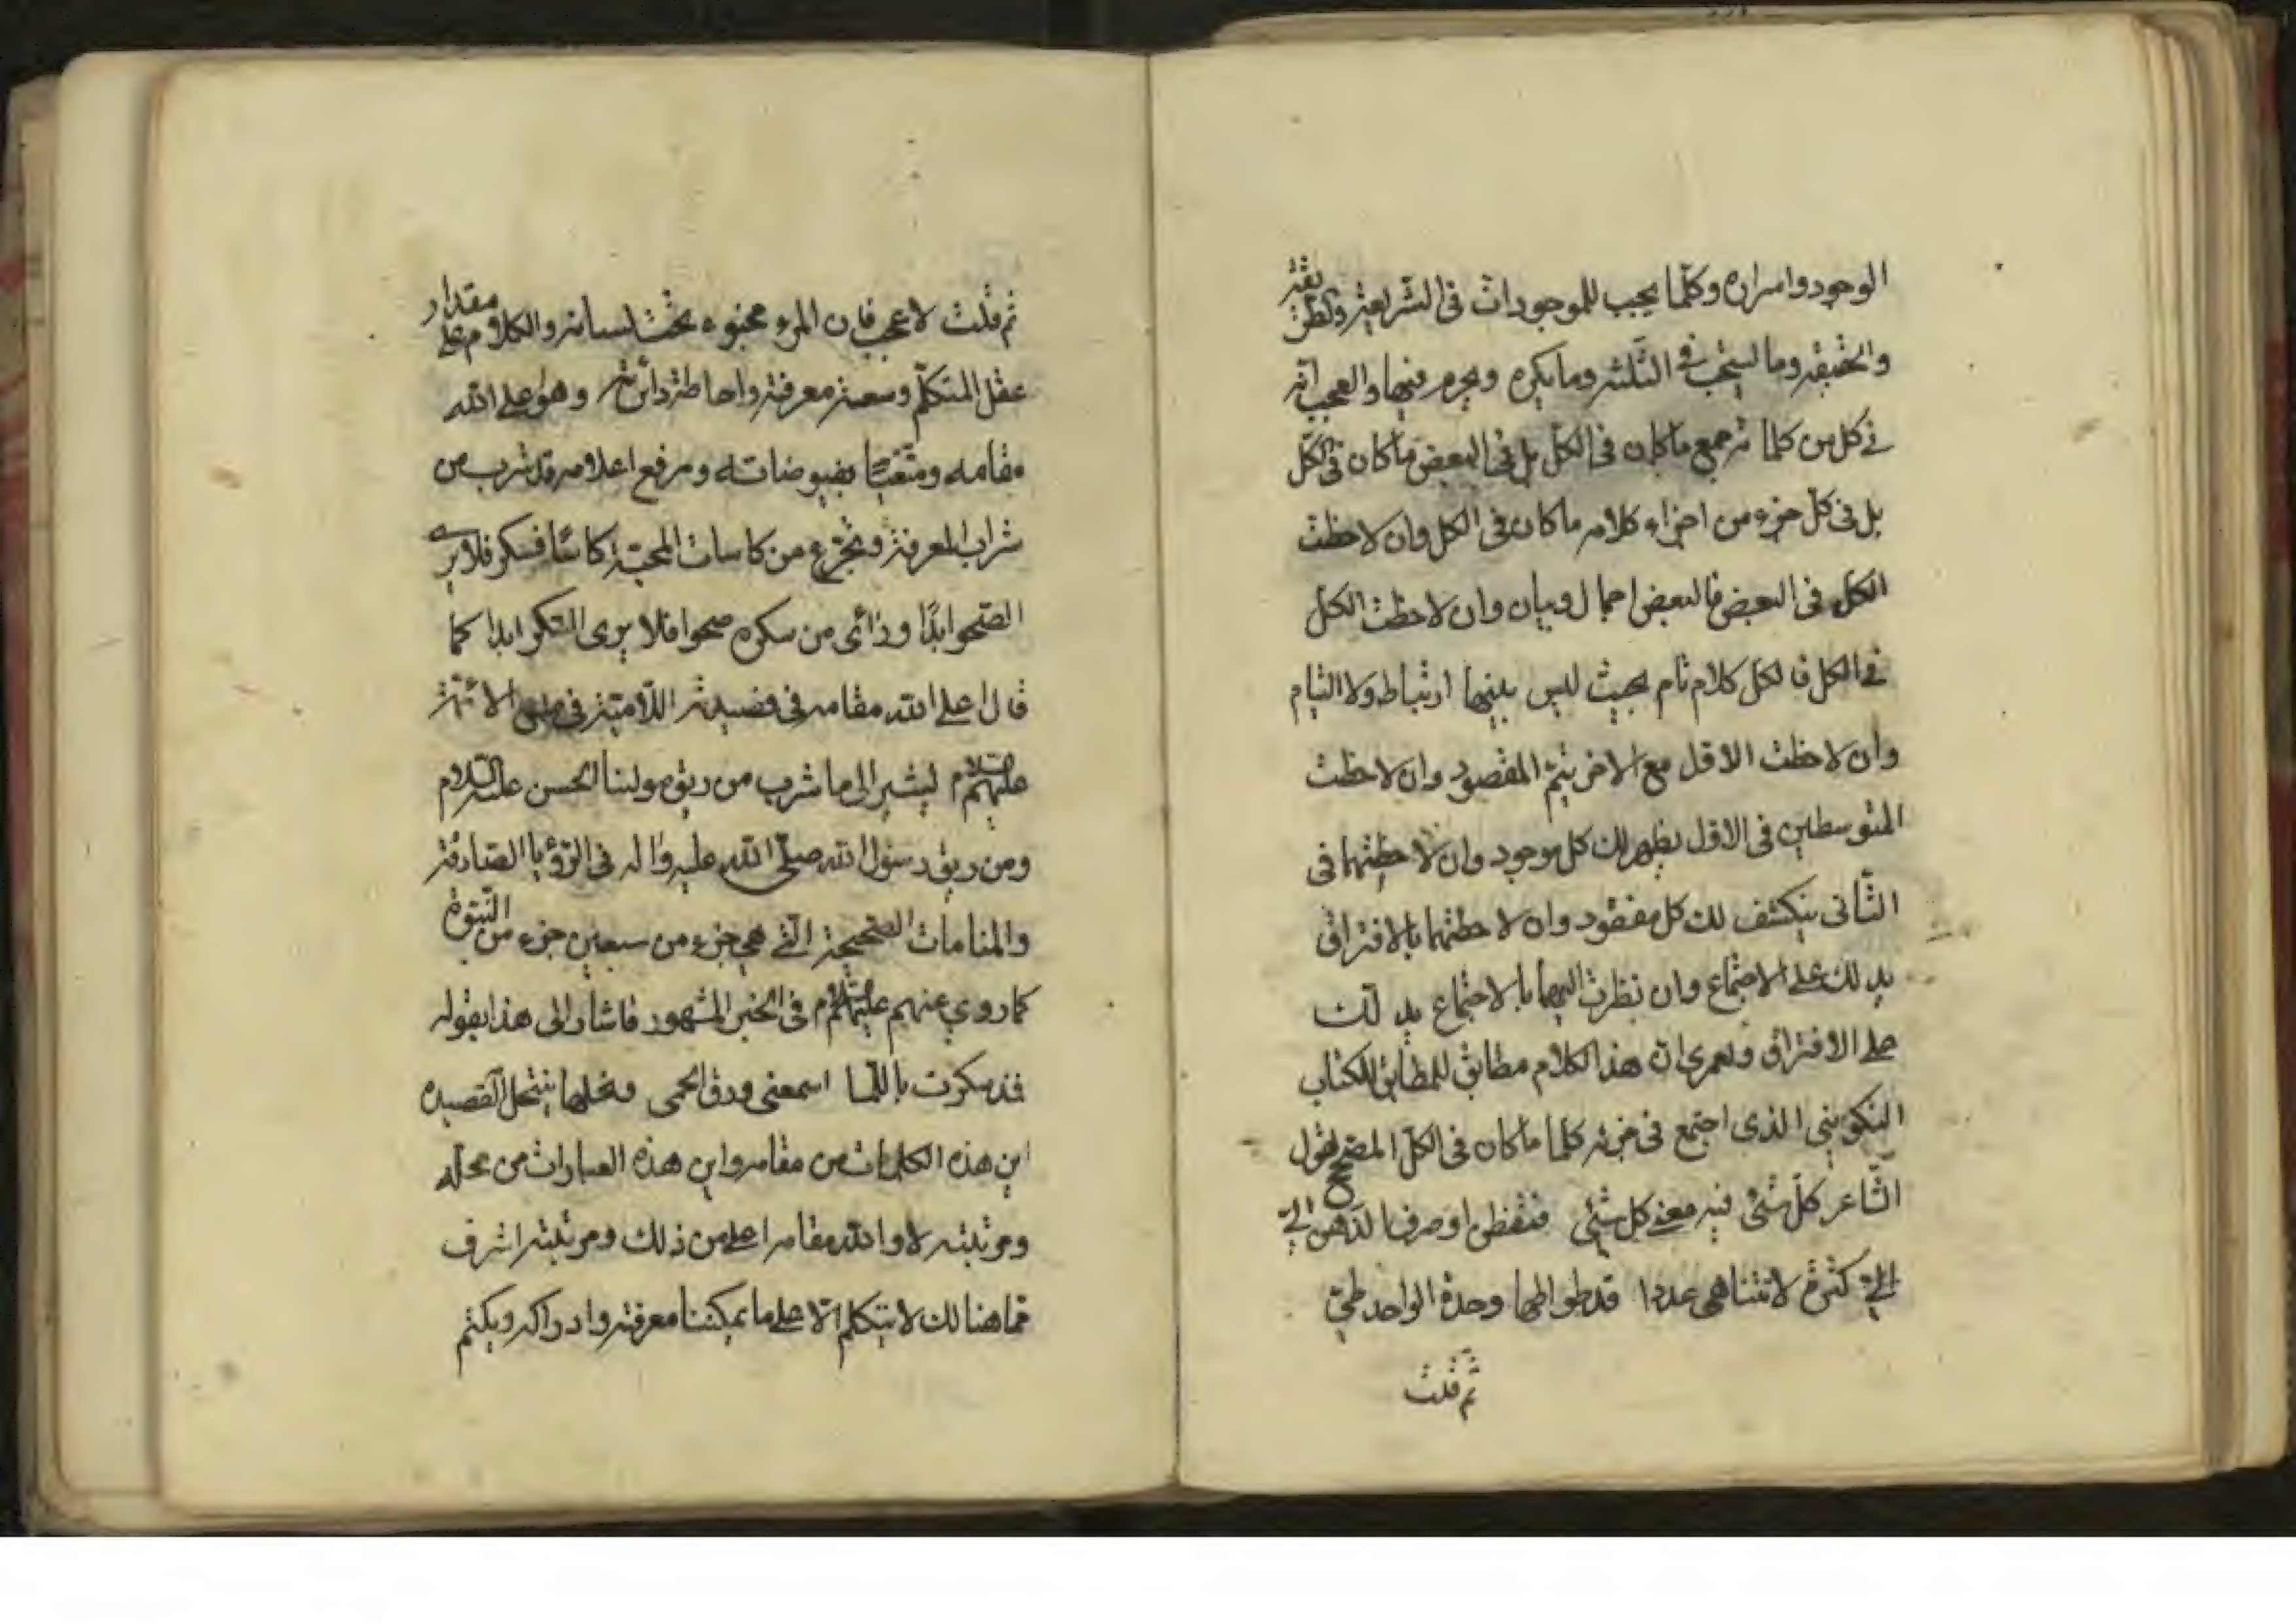 الوجود واسراره وكلّما يجب للموجودات فى الشّريعة والطّريقة
والحقيقة وما يستحب فى الثلثة وما يكره ويحرم فيها والعجب انّه
فى كل من كلماته جمع ما كان فى الكلّ بل فى البعض ما كان فى الكلّ
بل فى كلّ جزء من اجزاء كلامه ما كان فى الكل وان لاحظت
الكل فى البعض فالبعض اجمال وبيان وان لاحظت الكل
فى الكل فالكل كلام تام بحيث ليس بينها ارتباط ولا التيام
وان لاحظت الاول مع الاخر يتمّ المقصود وان لاحظت
المتوسطين فى الاول يظهر لك كل موجود وان لاحظتهما فى
الثّانى ينكشف لك كل مفقود وان لاحظتهما بالافتراق
يدلك على الاجتماع وان نظرت اليهما بالاجتماع يدلك
على الافتراق ولعمرى انّ هذا الكلام مطابق للكتاب
التكوينى الذى اجتمع فى جزئه كلما ما كان فى الكلّ المصحح لقول
الشّاعر كلّ شئ فيه معنى كل شئ فتفطن واصرف الذهن الىّ
كثرة لا تتناهى عددا قد طوتها وحدة الواحد طىّ
ثم قلت
ثم قلت لا عجب فان المرء مخبوء تحت لسانه والكلام على مقدار
عقل المتكلّم وسعة معرفته واحاطة دائرته وهو اعلى الله
مقامه ومتّعنا بفيوضاته ورفع اعلامه قد شرب من
شراب المعرفة وتجرّع من كاسات المحبّة كاسًا فسكر فلا يرى
الصّحو ابدًا ورأى من سكره صحوا فلا يرى السّكر ابدا كما
قال اعلى الله مقامه فى قصيدته اللّامية فى الائمّة
عليهم السلام ليشير الى ما شرب من ريق مولينا الحسن عليه السلام
ومن ريق رسول الله صلّى الله عليه واله فى الرّؤيا الصّادقة
والمنامات الصّحيحة الّتى هى جزء من سبعين جزء من النّبوّة
كما روى عنهم عليهم السلام فى الخبر المشهور فاشار الى هذا بقوله
الحمى القصيدة
اين هذه الكلمات من مقامه واين هذه العبارات من محلّه
ومرتبته لا والله مقامه اعلى من ذلك ومرتبته اشرف
فما هنالك لا يتكلم الّا على ما يمكننا معرفته وادراكه ويكتم